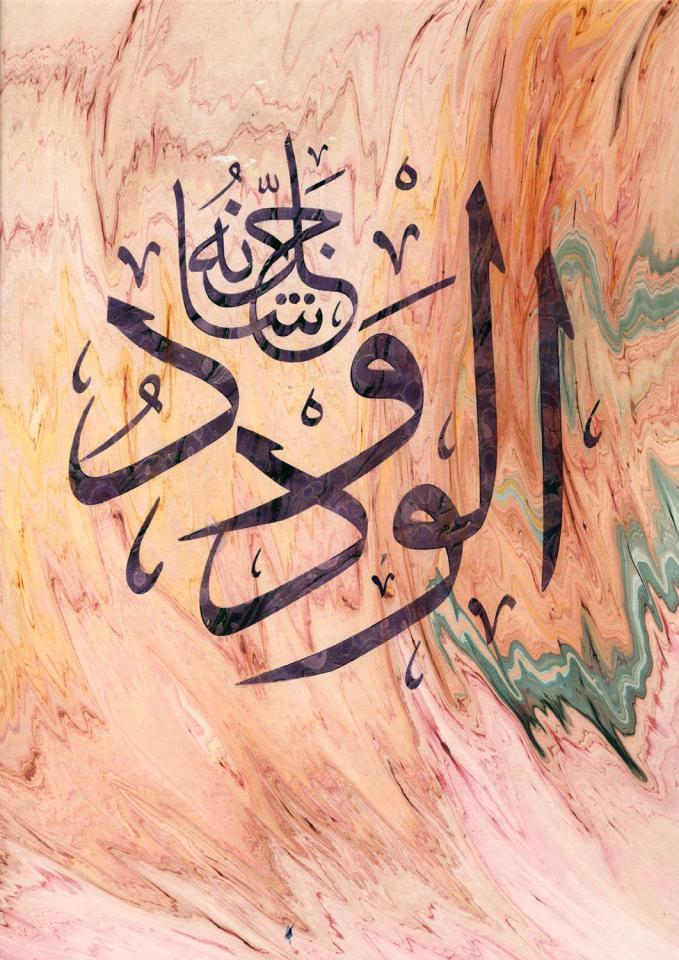 الودود
جل شانه